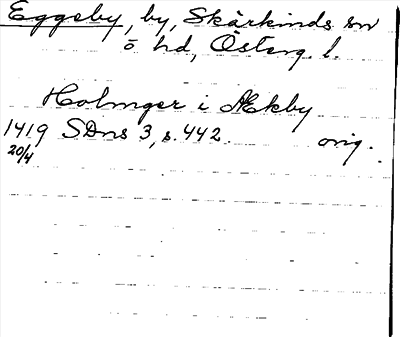 Eggeby, by, Skärkinds sn
o hd, Österg. l.
Holmger i Ækby
1419 SDns 3, s. 442. orig.
20/4